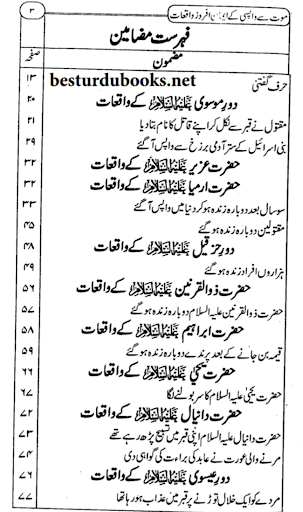 موت سے واپسی کے ایمان افروز واقعات ۳
فہرست مضامین
مضمون صفحہ
حرف گفتنی ۱۳
besturdubooks.net
دور موسوی علیہ السلام کے واقعات ۲۰
مقتول نے قبر سے نکل کر اپنے قاتل کا نام بتا دیا ۲۱
بنی اسرائیل کے ستر آدمی برزخ سے واپس آ گئے ۲۹
حضرت عزیر علیہ السلام کے واقعات ۳۲
حضرت ارمیا علیہ السلام کے واقعات ۳۲
سو سال بعد دوبارہ زندہ ہو کر دنیا میں واپس آ گئے ۳۳
مقتولین دوبارہ زندہ ہو گئے ۴۵
دور حزقیل علیہ السلام کے واقعات ۴۸
ہزاروں افراد زندہ ہو گئے ۴۹
حضرت ذوالقرنین علیہ السلام کے واقعات ۵۶
حضرت ذوالقرنین علیہ السلام دوبارہ زندہ ہو گئے ۵۷
حضرت ابراہیم علیہ السلام کے واقعات ۵۸
قیمہ بن جانے کے بعد پرندے دوبارہ زندہ ہو گئے ۵۹
حضرت یحییٰ علیہ السلام کے واقعات ۶۶
حضرت یحییٰ علیہ السلام کا سر بولنے لگا ۶۷
حضرت دانیال علیہ السلام کے واقعات ۷۲
حضرت دانیال علیہ السلام اپنی قبر میں تسبیح پڑھ رہے تھے ۷۳
مرنے والی عورت نے عابد کی براءت کی گواہی دی ۷۴
دور عیسوی علیہ السلام کے واقعات ۷۶
مردے کو ایک خلال توڑنے پر قبر میں عذاب ہو رہا تھا ۷۷